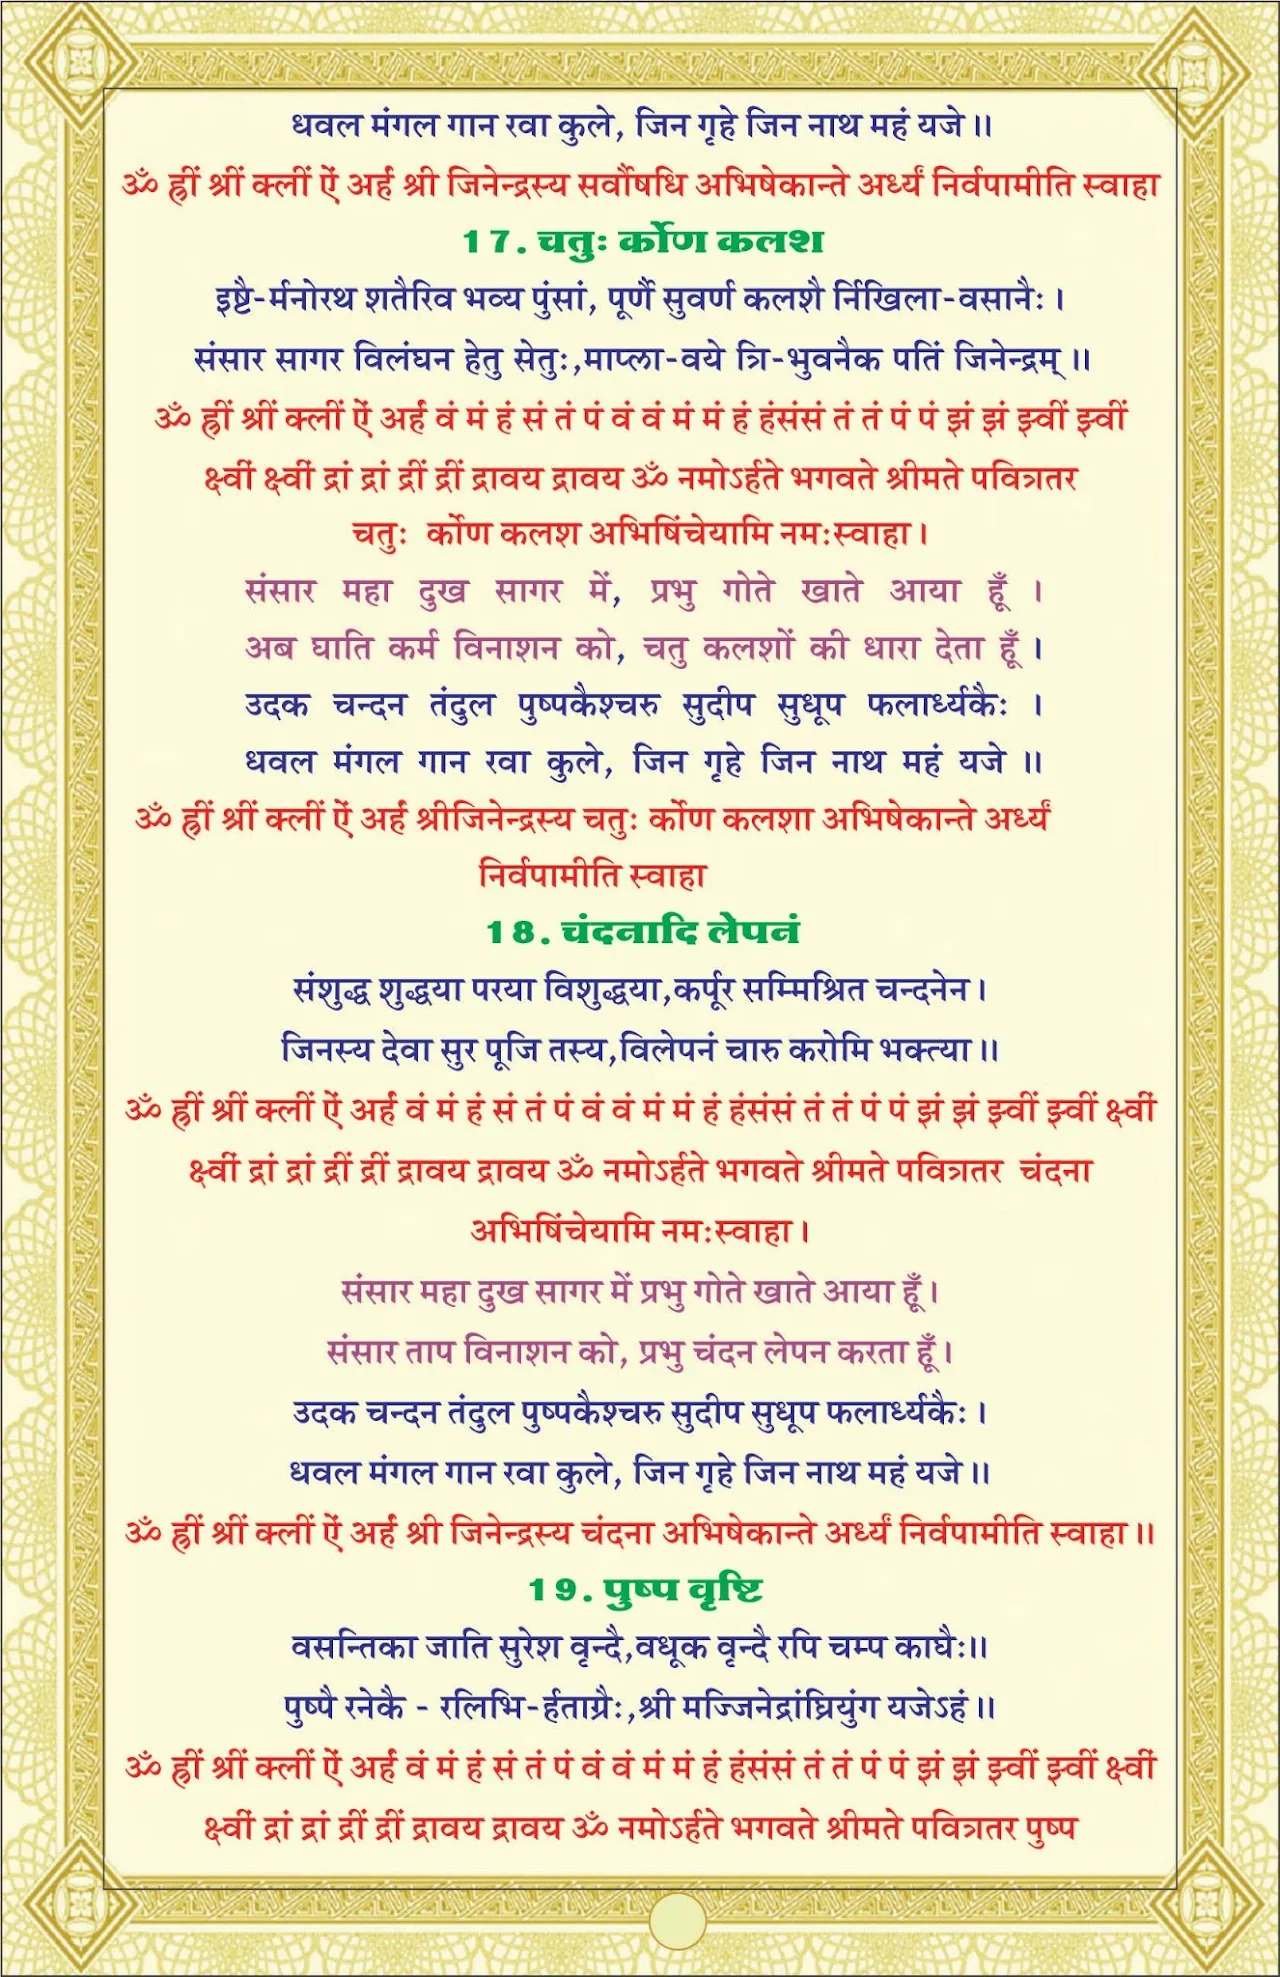 धवल मंगल गान रवा कुले, जिन गृहे जिन नाथ महं यजे ।।
ॐ ह्रीं श्रीं क्लीं ऐं अर्हं श्री जिनेन्द्रस्य सर्वौषधि अभिषेकान्ते अर्ध्यं निर्वपामीति स्वाहा
17. चतुः र्कोण कलश
इष्टै-र्मनोरथ शतैरिव भव्य पुंसां, पूर्णै सुवर्ण कलशै र्निखिला-वसानैः ।
संसार सागर विलंघन हेतु सेतुः,माप्ला-वये त्रि-भुवनैक पतिं जिनेन्द्रम् ।।
ॐ ह्रीं श्रीं क्लीं ऐं अर्हं वं मं हं सं तं पं वं वं मं मं हं हंसंसं तं तं पं पं झं झं झ्वीं झ्वीं
क्ष्वीं क्ष्वीं द्रां द्रां द्रीं द्रीं द्रावय द्रावय ॐ नमोऽर्हते भगवते श्रीमते पवित्रतर
चतुः र्कोण कलश अभिषिंचेयामि नमःस्वाहा।
संसार महा दुख सागर में, प्रभु गोते खाते आया हूँ ।
अब घाति कर्म विनाशन को, चतु कलशों की धारा देता हूँ ।
उदक चन्दन तंदुल पुष्पकैश्चरु सुदीप सुधूप फलार्ध्यकैः ।
धवल मंगल गान रवा कुले, जिन गृहे जिन नाथ महं यजे ।।
ॐ ह्रीं श्रीं क्लीं ऐं अर्हं श्रीजिनेन्द्रस्य चतुः र्कोण कलशा अभिषेकान्ते अर्ध्यं
निर्वपामीति स्वाहा
18. चंदनादि लेपनं
संशुद्ध शुद्धया परया विशुद्धया,कर्पूर सम्मिश्रित चन्दनेन।
जिनस्य देवा सुर पूजि तस्य,विलेपनं चारु करोमि भक्त्या।।
ॐ ह्रीं श्रीं क्लीं ऐं अर्हं वं मं हं सं तं पं वं वं मं मं हं हंसंसं तं तं पं पं झं झं झ्वीं झ्वीं क्ष्वीं
क्ष्वीं द्रां द्रां द्रीं द्रीं द्रावय द्रावय ॐ नमोऽर्हते भगवते श्रीमते पवित्रतर चंदना
अभिषिंचेयामि नमःस्वाहा।
संसार महा दुख सागर में प्रभु गोते खाते आया हूँ।
संसार ताप विनाशन को, प्रभु चंदन लेपन करता हूँ।
उदक चन्दन तंदुल पुष्पकैश्चरु सुदीप सुधूप फलार्ध्यकैः ।
धवल मंगल गान रवा कुले, जिन गृहे जिन नाथ महं यजे ।।
ॐ ह्रीं श्रीं क्लीं ऐं अर्हं श्री जिनेन्द्रस्य चंदना अभिषेकान्ते अर्ध्यं निर्वपामीति स्वाहा।।
19. पुष्प वृष्टि
वसन्तिका जाति सुरेश वृन्दै,वधूक वृन्दै रपि चम्प काघैः।।
पुष्पै रनेकै - रलिभि-र्हताग्रैः,श्री मज्जिनेद्रांघ्रियुंग यजेऽहं।।
ॐ ह्रीं श्रीं क्लीं ऐं अर्हं वं मं हं सं तं पं वं वं मं मं हं हंसंसं तं तं पं पं झं झं झ्वीं झ्वीं क्ष्वीं
क्ष्वीं द्रां द्रां द्रीं द्रीं द्रावय द्रावय ॐ नमोऽर्हते भगवते श्रीमते पवित्रतर पुष्प